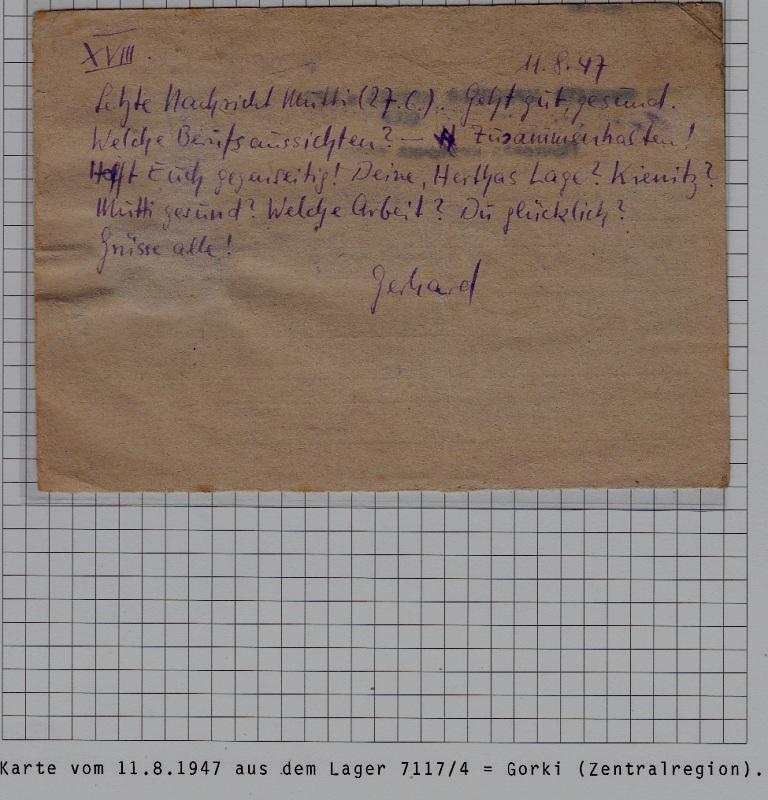 XVIII.
11.8.47
Letzte Nachricht Mutti (27.6.). Geht gut, gesund.
Welche Berufsaussichten? — Zusammenhalten!
Helft Euch gegenseitig! Deine, Herthas Lage? Kienitz?
Mutti gesund? Welche Arbeit? Du glücklich?
Grüsse alle!
Gerhard
Karte vom 11.8.1947 aus dem Lager 7117/4 = Gorki (Zentralregion).